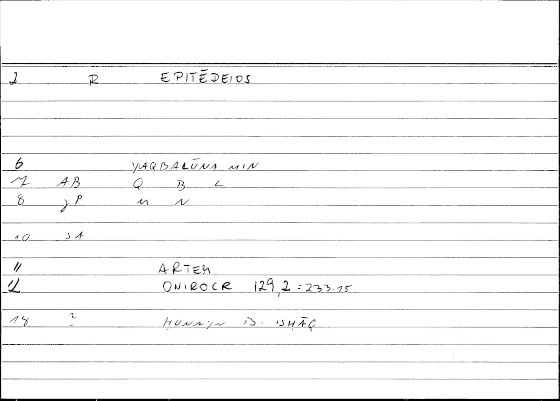 2 R EPITĒDEIOS
6 YAQBALŪNA MIN
7 AB Q B L
8 P M N
10 SA
11 ARTEM
12 ONIROCR 129,2 = 233.15
18 ? HUNAYN B. ISHĀQ